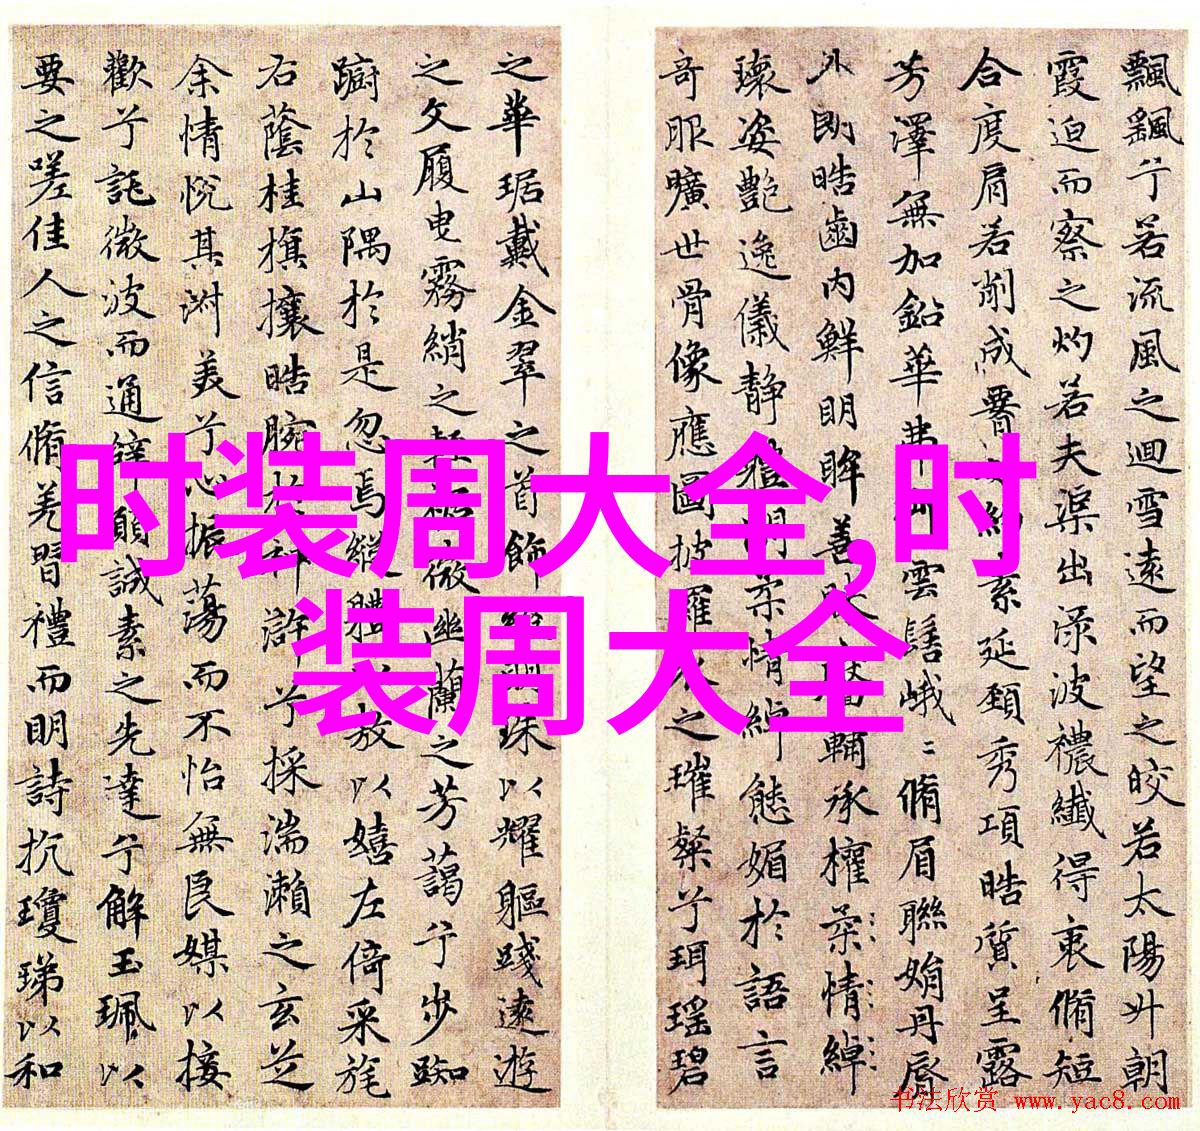 飄飖兮若流風之迴雪遠而望之皎若太陽升朝
霞迫而察之灼若夫渠出渌波襛纖得衷脩短
合度肩若削成署素延頸秀項皓質呈露
芳澤無加鉛華弗雲髻峨〻脩眉聯娟丹唇
外朗皓齒內鮮明眸善輔承權柔情綽
瓌姿艷逸儀靜柔情綽態媚於語言
奇服曠世骨像應圖披羅之璀璨兮珥瑶碧
之華琚戴金翠之首飾珠以耀軀踐遠遊
之文履曳霧綃之輕裾微幽蘭之芳藹兮步踟
躕於山隅於是忽焉縱體以敖以嬉左倚采旄
右蔭桂旗攘皓腕於神滸兮採湍瀨之玄芝
余情悅其淑美兮心振蕩而不怡無良媒以接
歡兮託微波而通辭願誠素之先達兮解玉珮以
要之嗟佳人之信脩羌習禮而明詩抗瓊珶以和
时装周大全,时
装周大全
书法欣赏 www.yac8.com